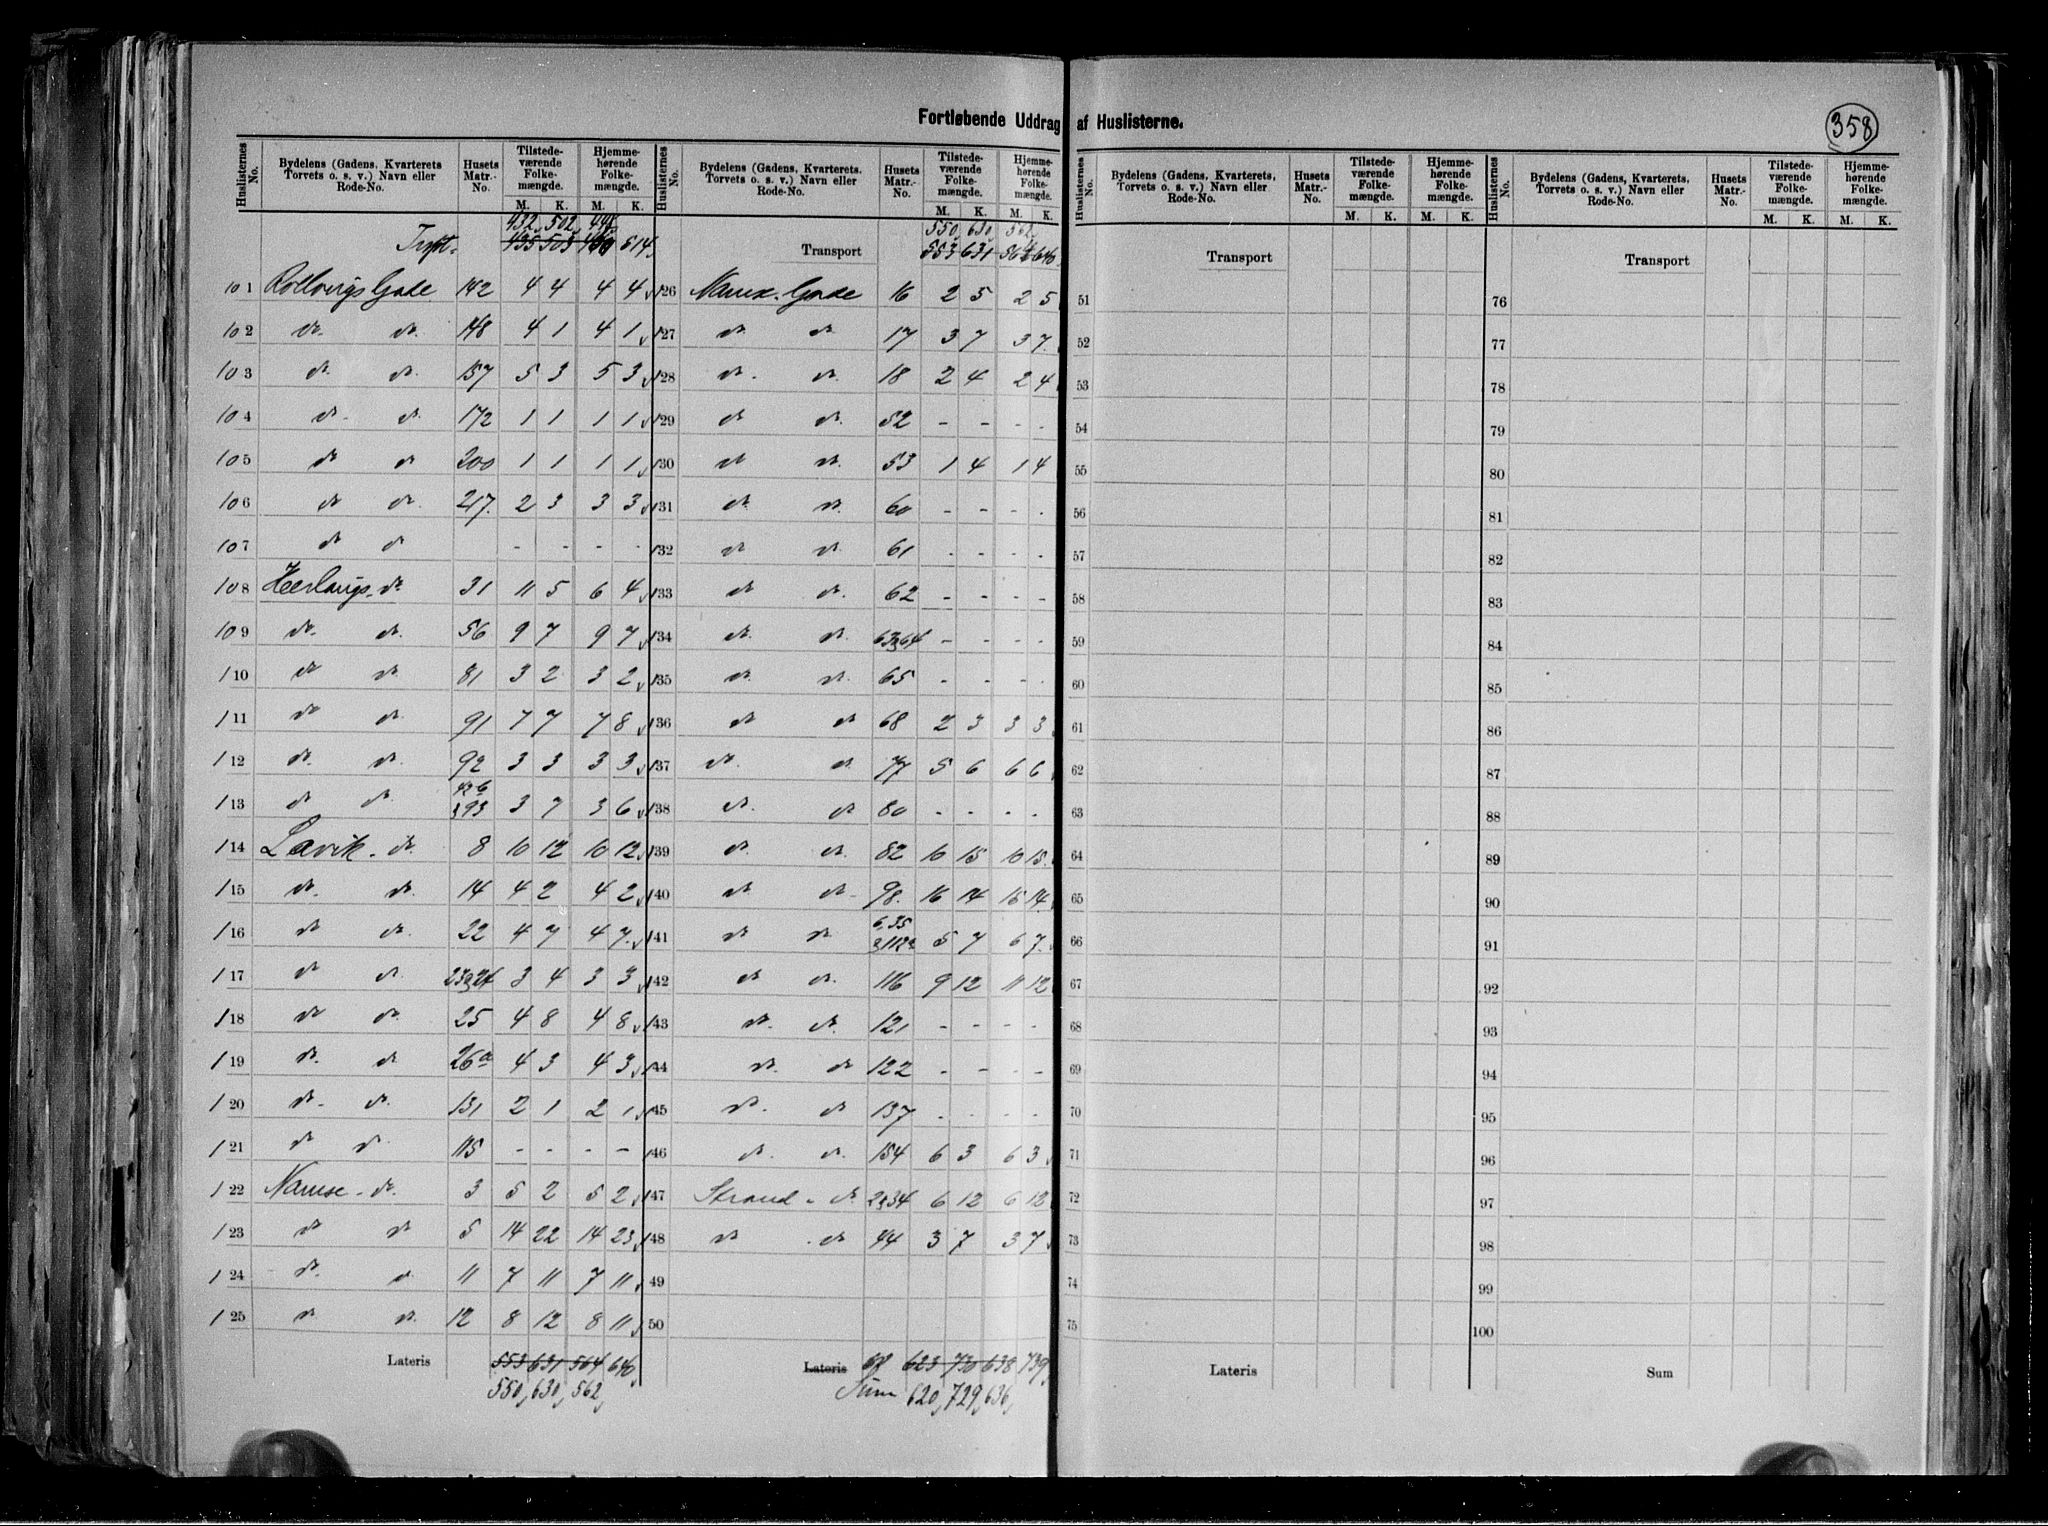 Fortløbende Uddrag af Huslisterne.
358
Huslisternes No. | Bydelens (Gadens, Kvarterets Torvets o. s. v.) Navn eller Rode-No. | Husets Matr.-No. | Tilstedeværende Folkemængde. M. K. | Hjemmehørende Folkemængde. M. K.
432, 502, 448,
Trpt. 435 505 450 514,
101 Rollvirgs Gade 142 4 4 4 4
102 do. do. 148 4 1 4 1
103 do. do. 157 5 3 5 3
104 do. do. 172 1 1 1 1
105 do do 200 1 1 1 1
106 do do. 217. 2 3 3 3
107 do do - - - -
108 Heerlaugs. do 31 11 5 6 4
109 do. do. 56 9 7 9 7
110 do do 81 3 2 3 2
111 do do. 91 7 7 7 8
112 do. do. 92 3 3 3 3
113 do do. & 93 3 7 3 6
114 Lavik. do. 8 10 12 10 12
115 do. do. 14 4 2 4 2
116 do do. 22 4 7 4 7.
117 do do. 23 & 24 3 4 3 3
118 do do. 25 4 8 4 8
119 do. do 26a 4 3 4 3
120 do. do. 131 2 1 2 1
121 do do. 115 - - - -
122 Namse. do. 3 5 2 5 2
123 do do 5 14 22 14 23
124 do. do 11 7 11 7 11
125 do do. 12 8 12 8 11
Lateris 553 631 564 640,
550, 630, 562,
Huslisternes No. | Bydelens (Gadens, Kvarterets. Torvets o. s. v.) Navn eller Rode-No. | Husets Matr.-No. | Tilstedeværende Folkemængde. M. K. | Hjemmehørende Folkemængde. M. K.
550, 630, 562,
Transport 553 631 564 640.
126 Namse. Gade 16 2 5 2 5
127 do do 17 3 7 3 7.
128 do. do. 18 2 4 2 4
129 do do. 52 - - - -
130 do do. 53 1 4 1 4
131 do. do. 60 - - - -
132 do do. 61 - - - -
133 do do. 62 - - - -
134 do. do. 63 & 64 - - - -
135 do. do. 65 - - - -
136 do do 68 2 3 3 3
137 do. do. 77 5 6 6 6
138 do. do 80 - - - -
139 do. do. 82 10 15 10 15.
140 do do. 98. 16 14 15 14
6, 35
141 do do. & 112a 5 7 6 7.
142 do do. 116 9 12 11 12
143 do. do. 121 - - - -
144 do. do 122 - - - -
145 do. do 137 - - - -
146 do. do. 154 6 3 6 3
147 Strand. do. 2 & 34 6 12 6 12
148 do do 44 3 7 3 7
49
50
Lateris 623 730 638 739,
Sum 620, 729, 636,
Huslisternes No. | Bydelens (Gadens, Kvarterets, Torvets o. s. v.) Navn eller Rode-No. | Husets Matr.-No. | Tilstedeværende Folkemængde. M. K. | Hjemmehørende Folkemængde. M. K.
Transport
51
52
53
54
55
56
57
58
59
60
61
62
63
64
65
66
67
68
69
70
71
72
73
74
75
Lateris
Huslisternes No. | Bydelens (Gadens, Kvarterets, Torvets o. s. v.) Navn eller Rode-No. | Husets Matr.-No. | Tilstedeværende Folkemængde. M. K. | Hjemmehørende Folkemængde. M. K.
Transport
76
77
78
79
80
81
82
83
84
85
86
87
88
89
90
91
92
93
94
95
96
97
98
99
100
Sum